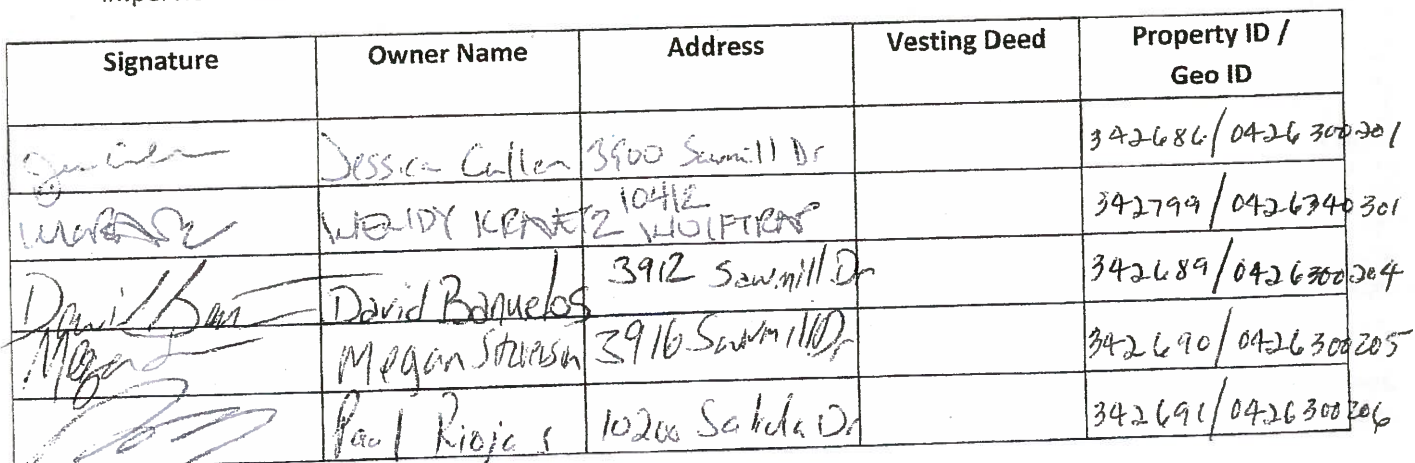 Signature Owner Name Address Vesting Deed Property ID /
Geo ID
Jessica Cullen 3900 Sawmill Dr 342686/0426300201
WENDY KRAVETZ 10412 WOLFTRAP 342799/0426340301
David Banuelos 3912 Sawmill Dr 342689/0426300204
Megan Stevenson 3916 Sawmill Dr 342690/0426300205
Paul Riojas 10200 Salida Dr 342691/0426300206